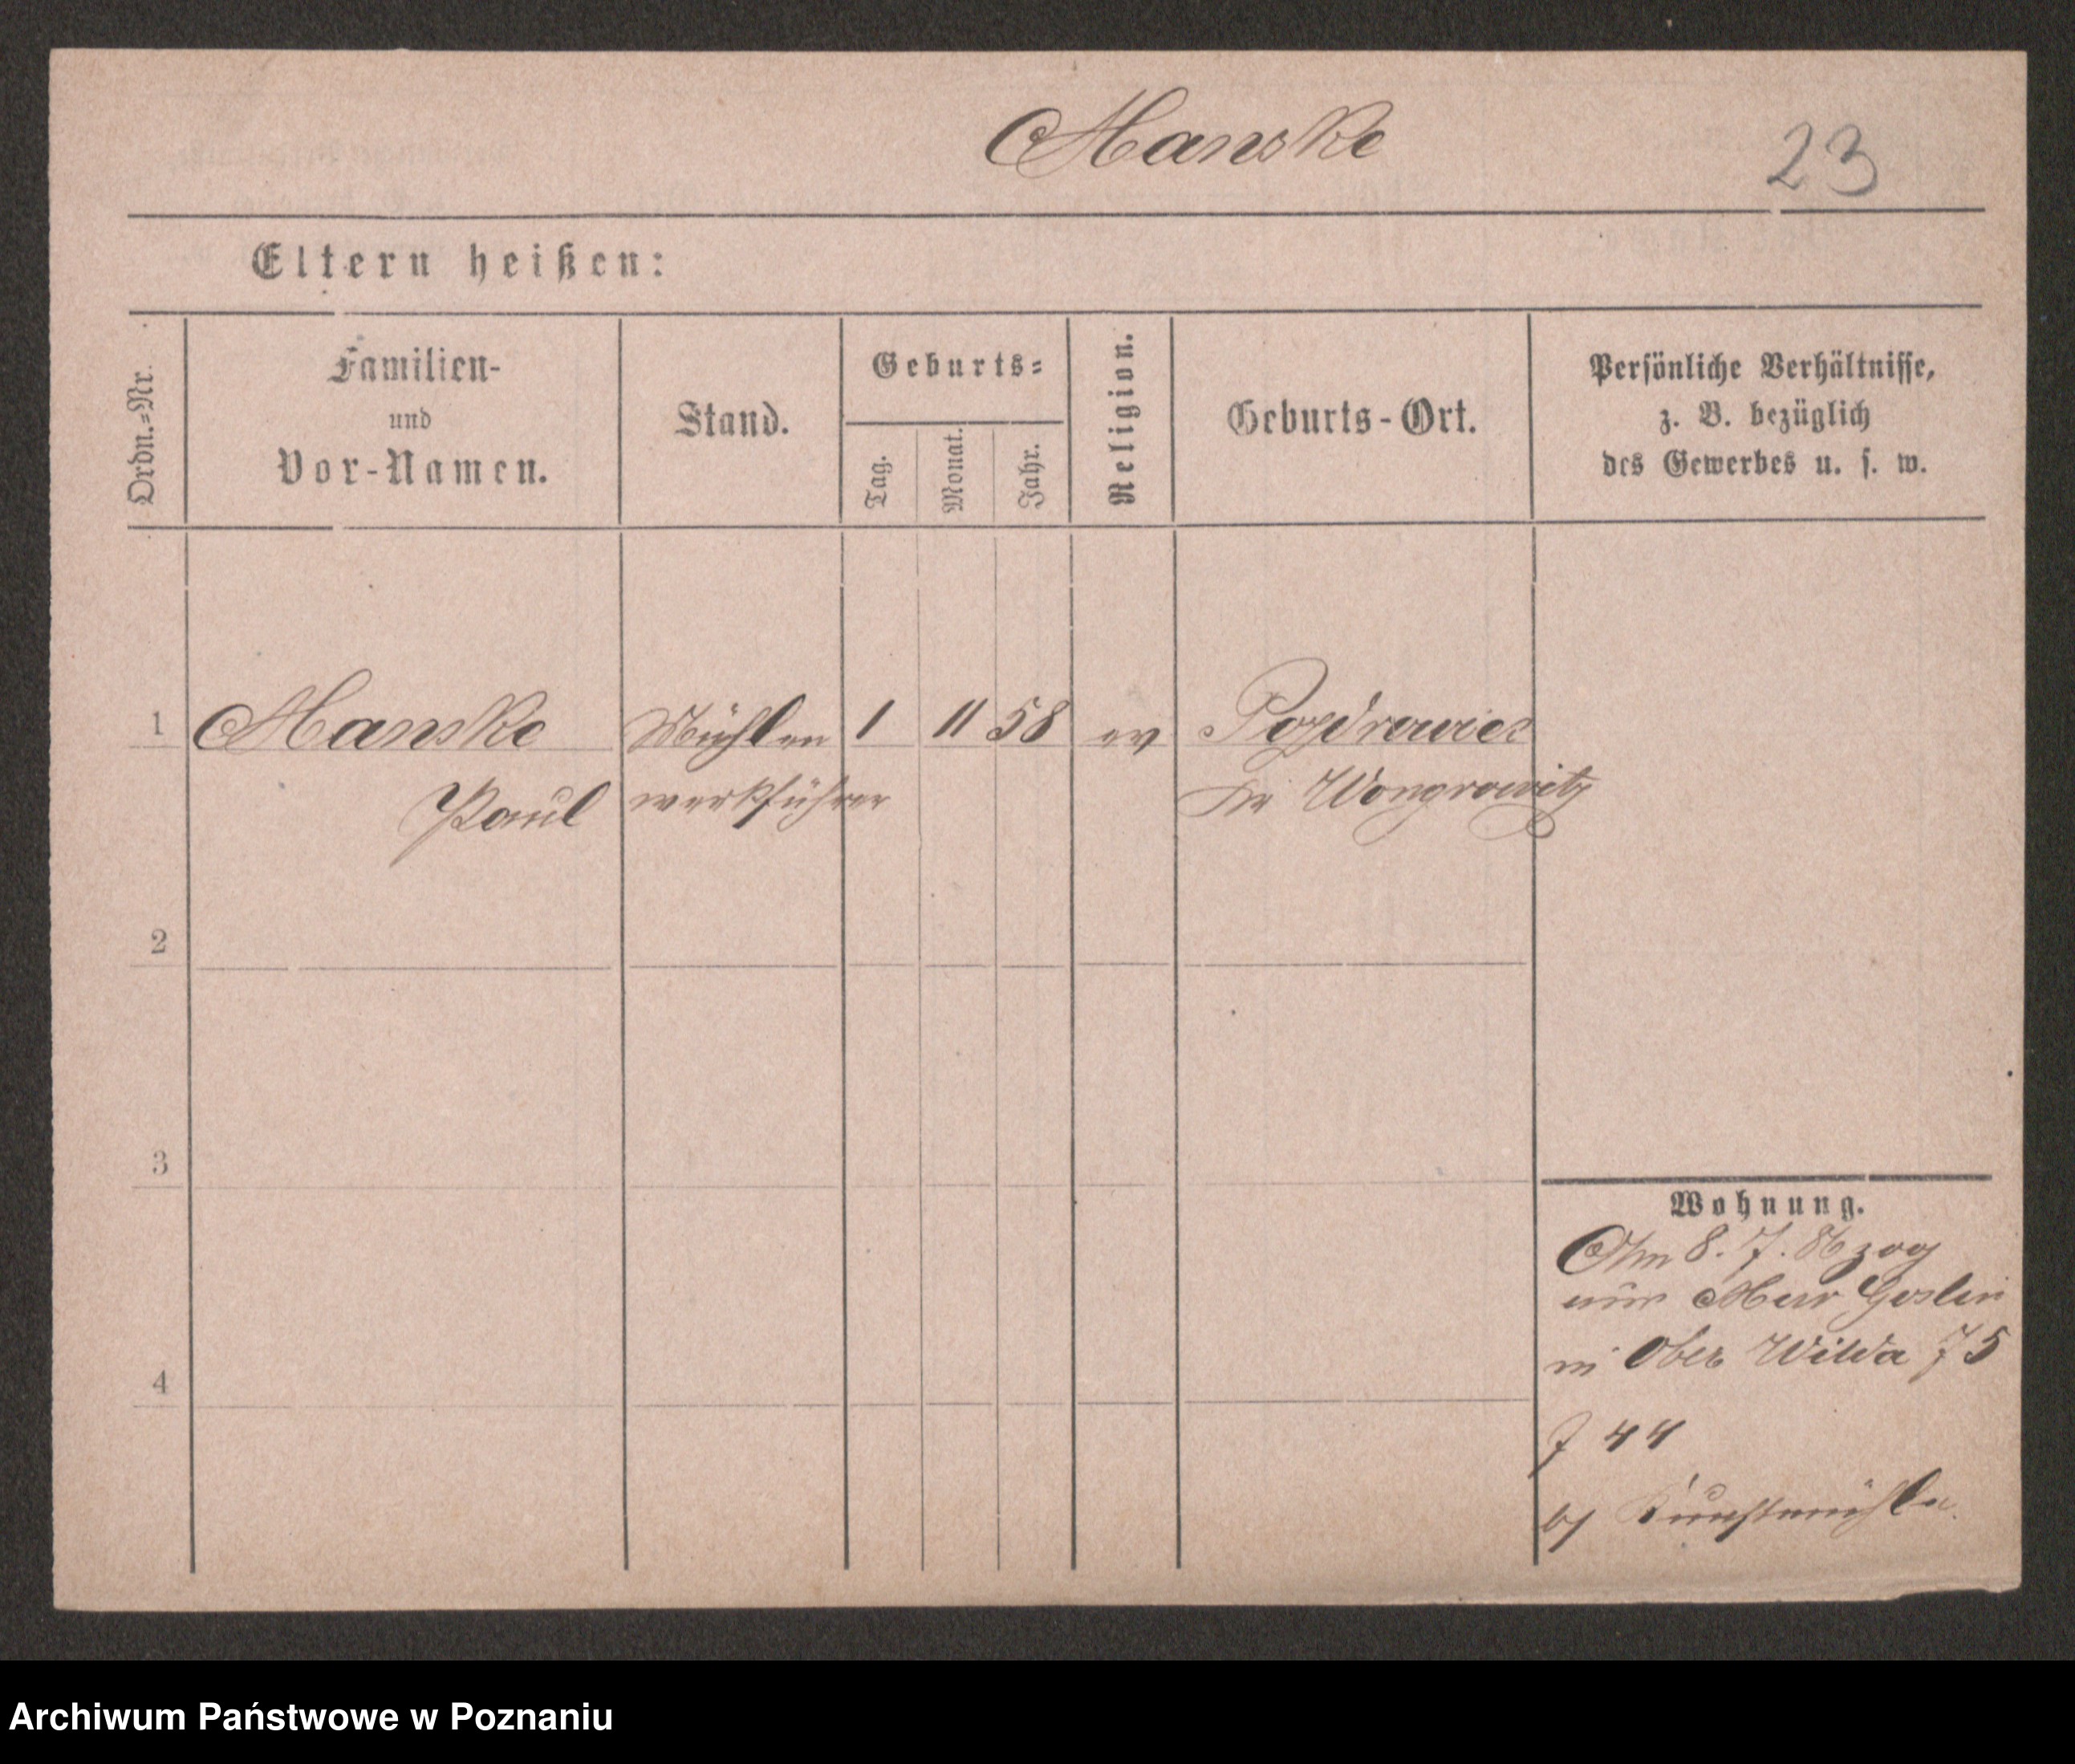 Manske
23
Eltern heißen:
Ordn.=Nr.
Familien-
und
Vor-Namen.
Stand.
Geburts=
Tag.
Monat.
Jahr.
Religion.
Geburts-Ort.
Persönliche Verhältnisse,
z. B. bezüglich
des Gewerbes u. s. w.
1 Manske Mühlen 1 11 58 ev
Paul werkführer Kr Wongrowitz
2
3
4
Wohnung.
Am 8. 7. 86 zog
aus Mur Goslin
in Ober Wilda 75
44
Kunstmühle
Archiwum Państwowe w Poznaniu